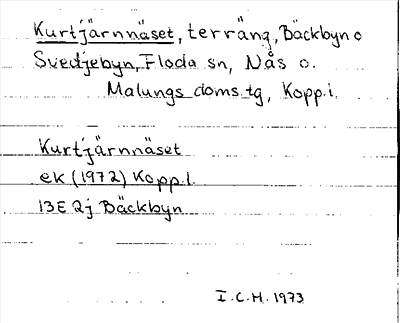 Kurtjärnnäset, terräng, Bäckbyn o
Svedjebyn, Floda sn, Nås o.
Malungs doms.tg, Kopp.i.
Kurtjärnnäset
ek (1972) Kopp.l.
13E 2j Bäckbyn
I.C.H. 1973